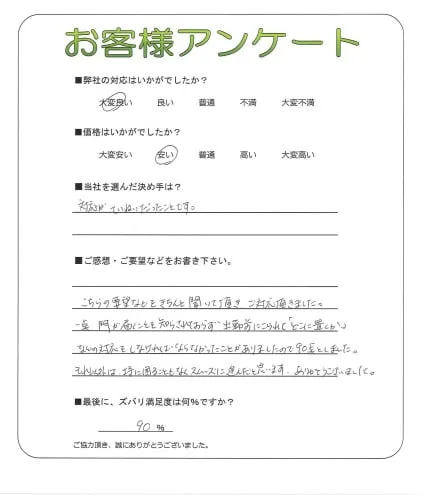 お客様アンケート
■弊社の対応はいかがでしたか？
大変良い　良い　普通　不満　大変不満
■価格はいかがでしたか？
大変安い　安い　普通　高い　大変高い
■当社を選んだ決め手は？
対応がていねいだったことです。
■ご感想・ご要望などをお書き下さい。
こちらの要望などをきちんと聞いて頂き ご対応頂きました。
一点 門が届くことを知らされておらず 出勤前にこられて「どこに置くか」
などの対応をしなければならなかったことがありましたので90点としました。
それ以外は、特に困ることもなくスムーズに進んだと思います。ありがとうございました。
■最後に、ズバリ満足度は何％ですか？
90 %
ご協力頂き、誠にありがとうございました。